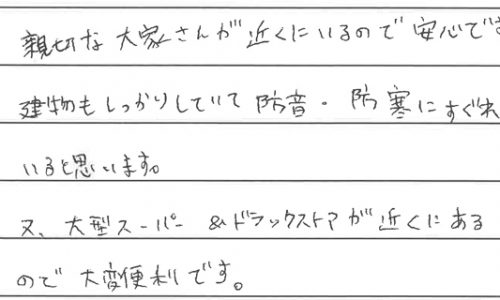 親切な大家さんが近くにいるので安心でき
建物もしっかりしていて防音・防寒にすぐれ
いると思います。
又、大型スーパー&ドラックストアが近くにある
ので大変便利です。